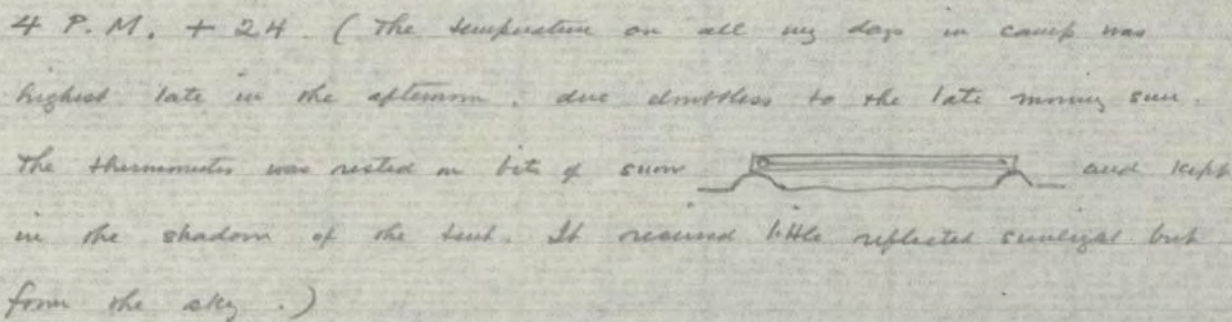 4 P.M. + 24. (The temperature on all my days in camp was
highest late in the afternoon, due doubtless to the late morning sun.
The thermometer was rested on bits of snow and kept
in the shadow of the tent. It received little reflected sunlight but
from the sky.)